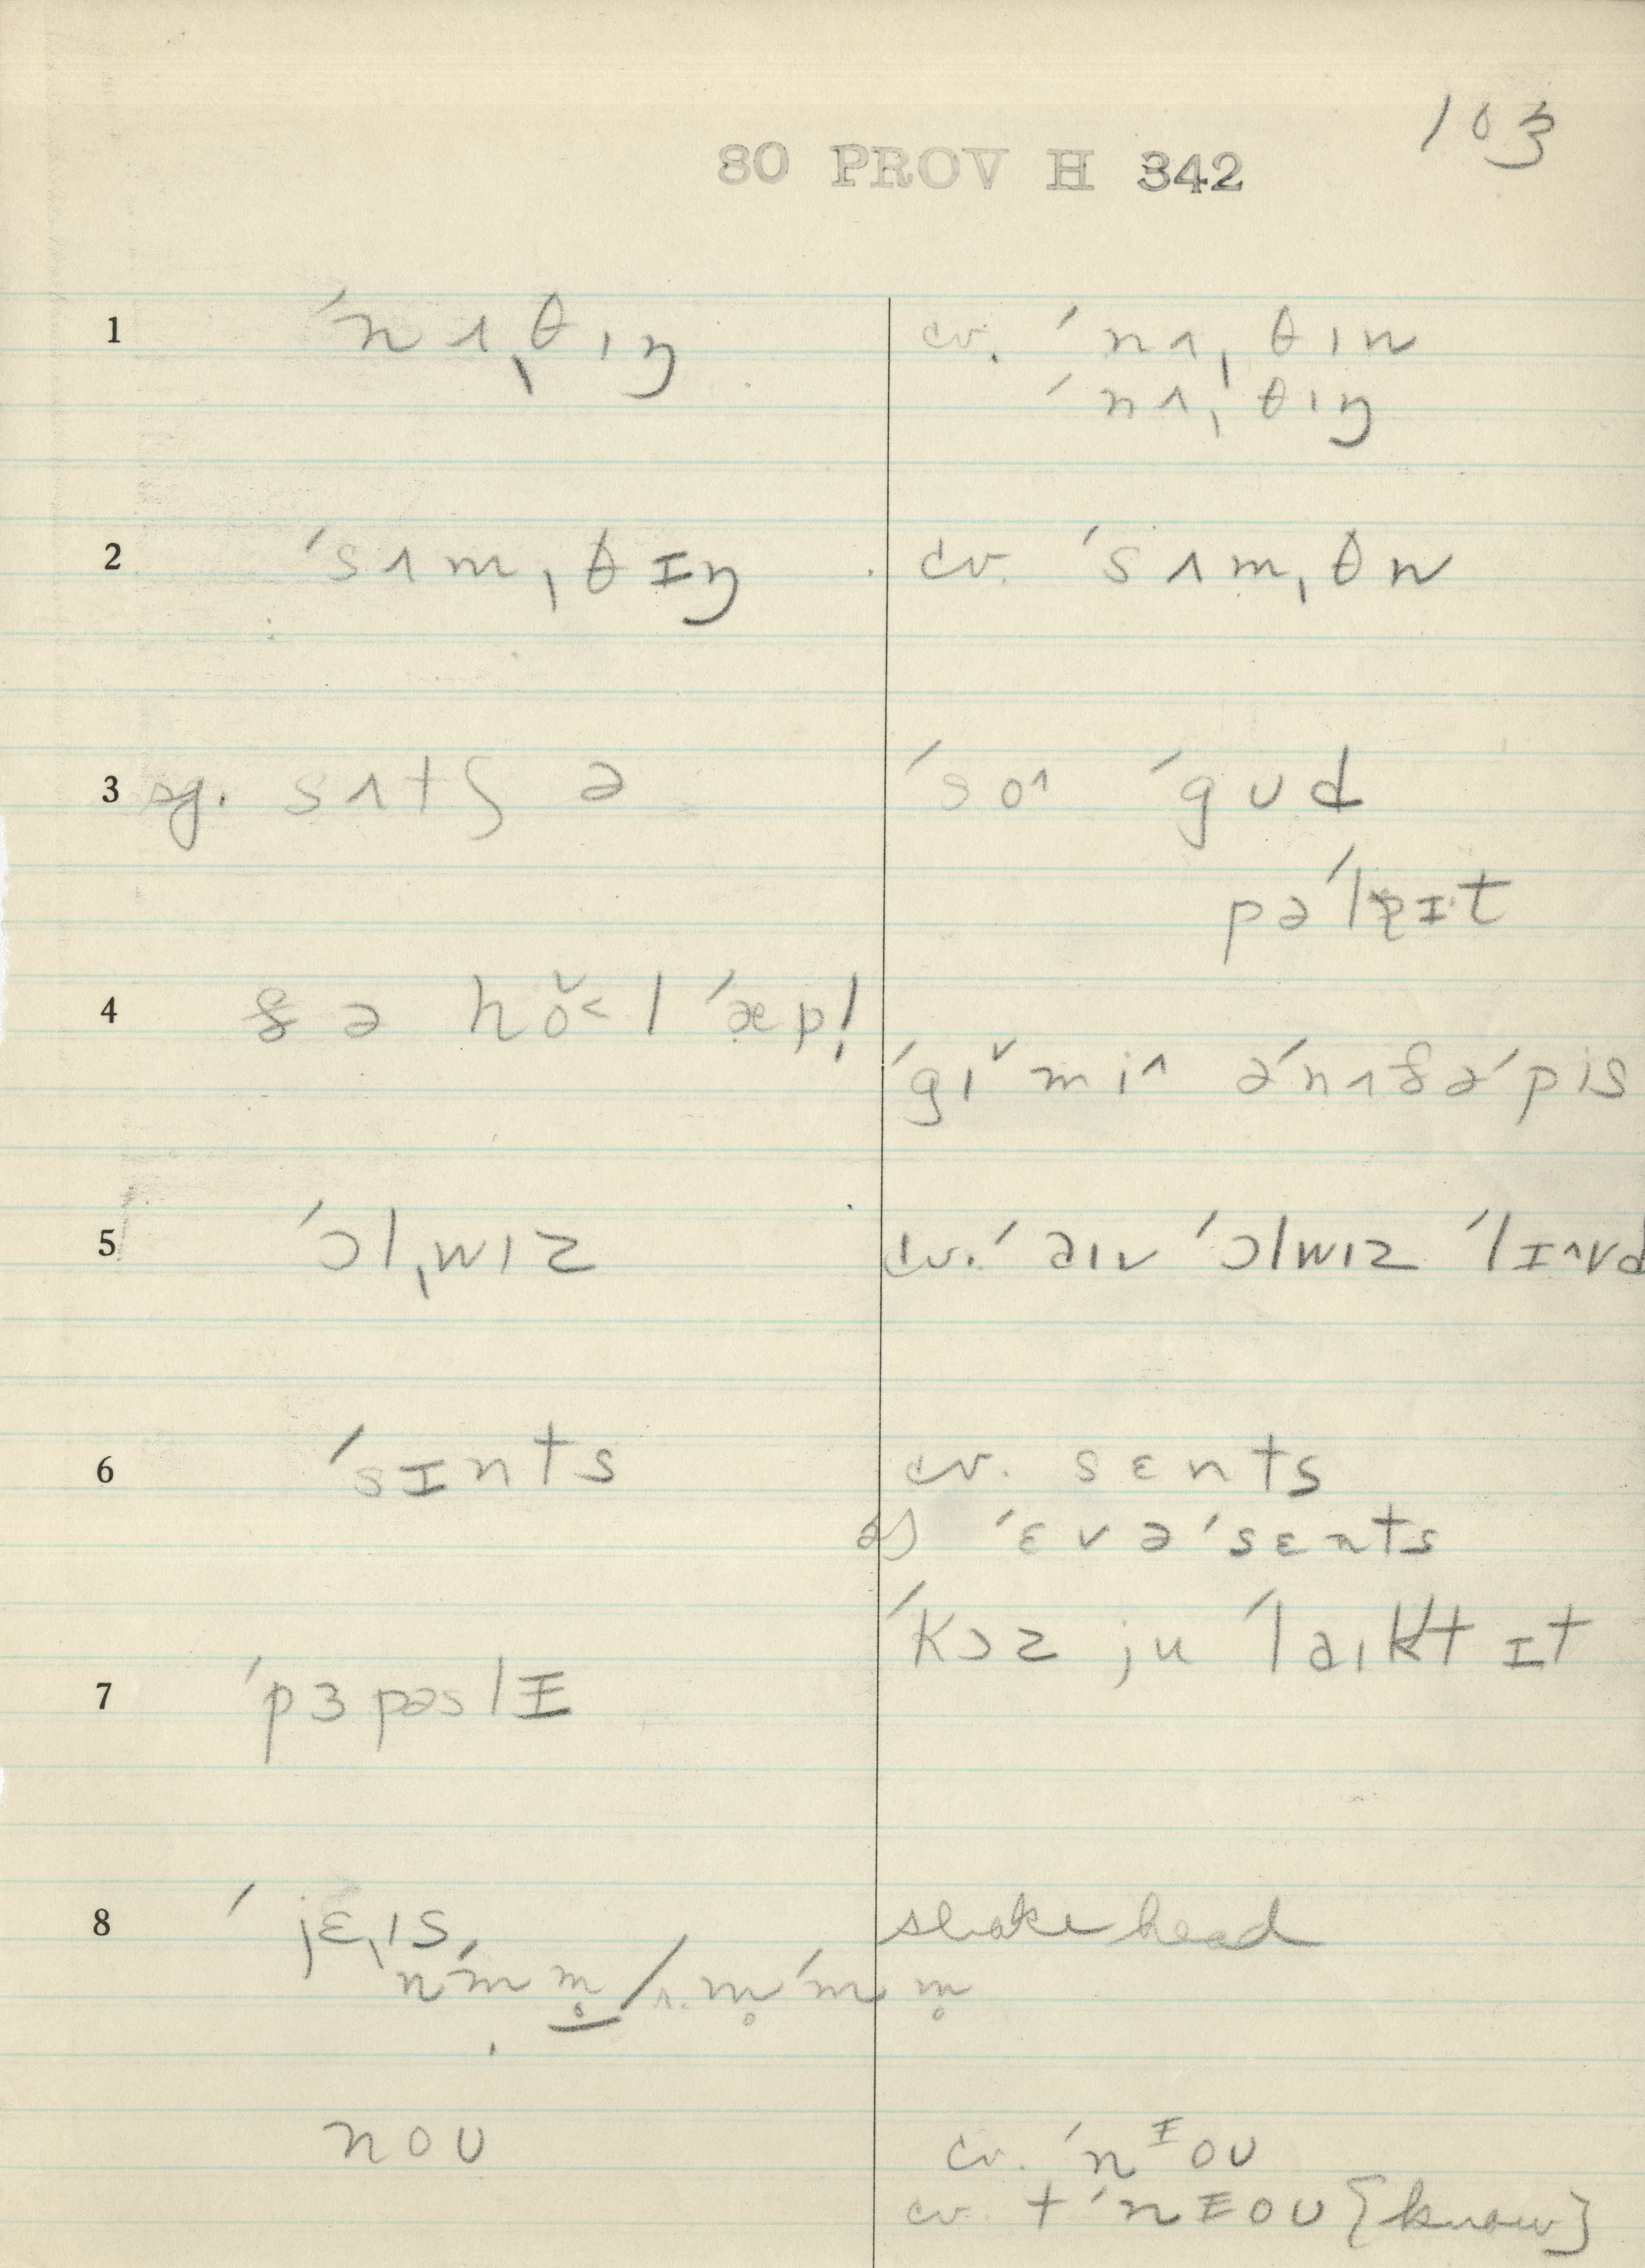 103
80 PROV H 342
1 ˈnʌˌθɪŋ cv. ˈnʌˌθɪn
ˈnʌˌθɪŋ
2 ˈsʌmˌθɪŋ cv. ˈsʌmˌθn
3 sg. sʌtʃ ə ˈso^ ˈgʊd
pəˈlɪt
4 ðə hŏ˂l ˈæp! ˈgɪˇ mi^ əˈnʌðəˈpis
5 ˈɔlˌwɪz cv. ˈaɪv ˈɔlwɪz ˈlɪ^vd
6 ˈsɪnts cv. sɛnts
a) ˈɛvəˈsɛnts
ˈkɔz ju ˈlaɪkt ɪt
7 ˈpɜpəslɪ
8 ˈjɛˌɪs shake head
nˈm m̥ / m̥ ˈm m̥
noʊ cv. ˈnᶦoʊ
cv. + ˈnɪoʊ {know}